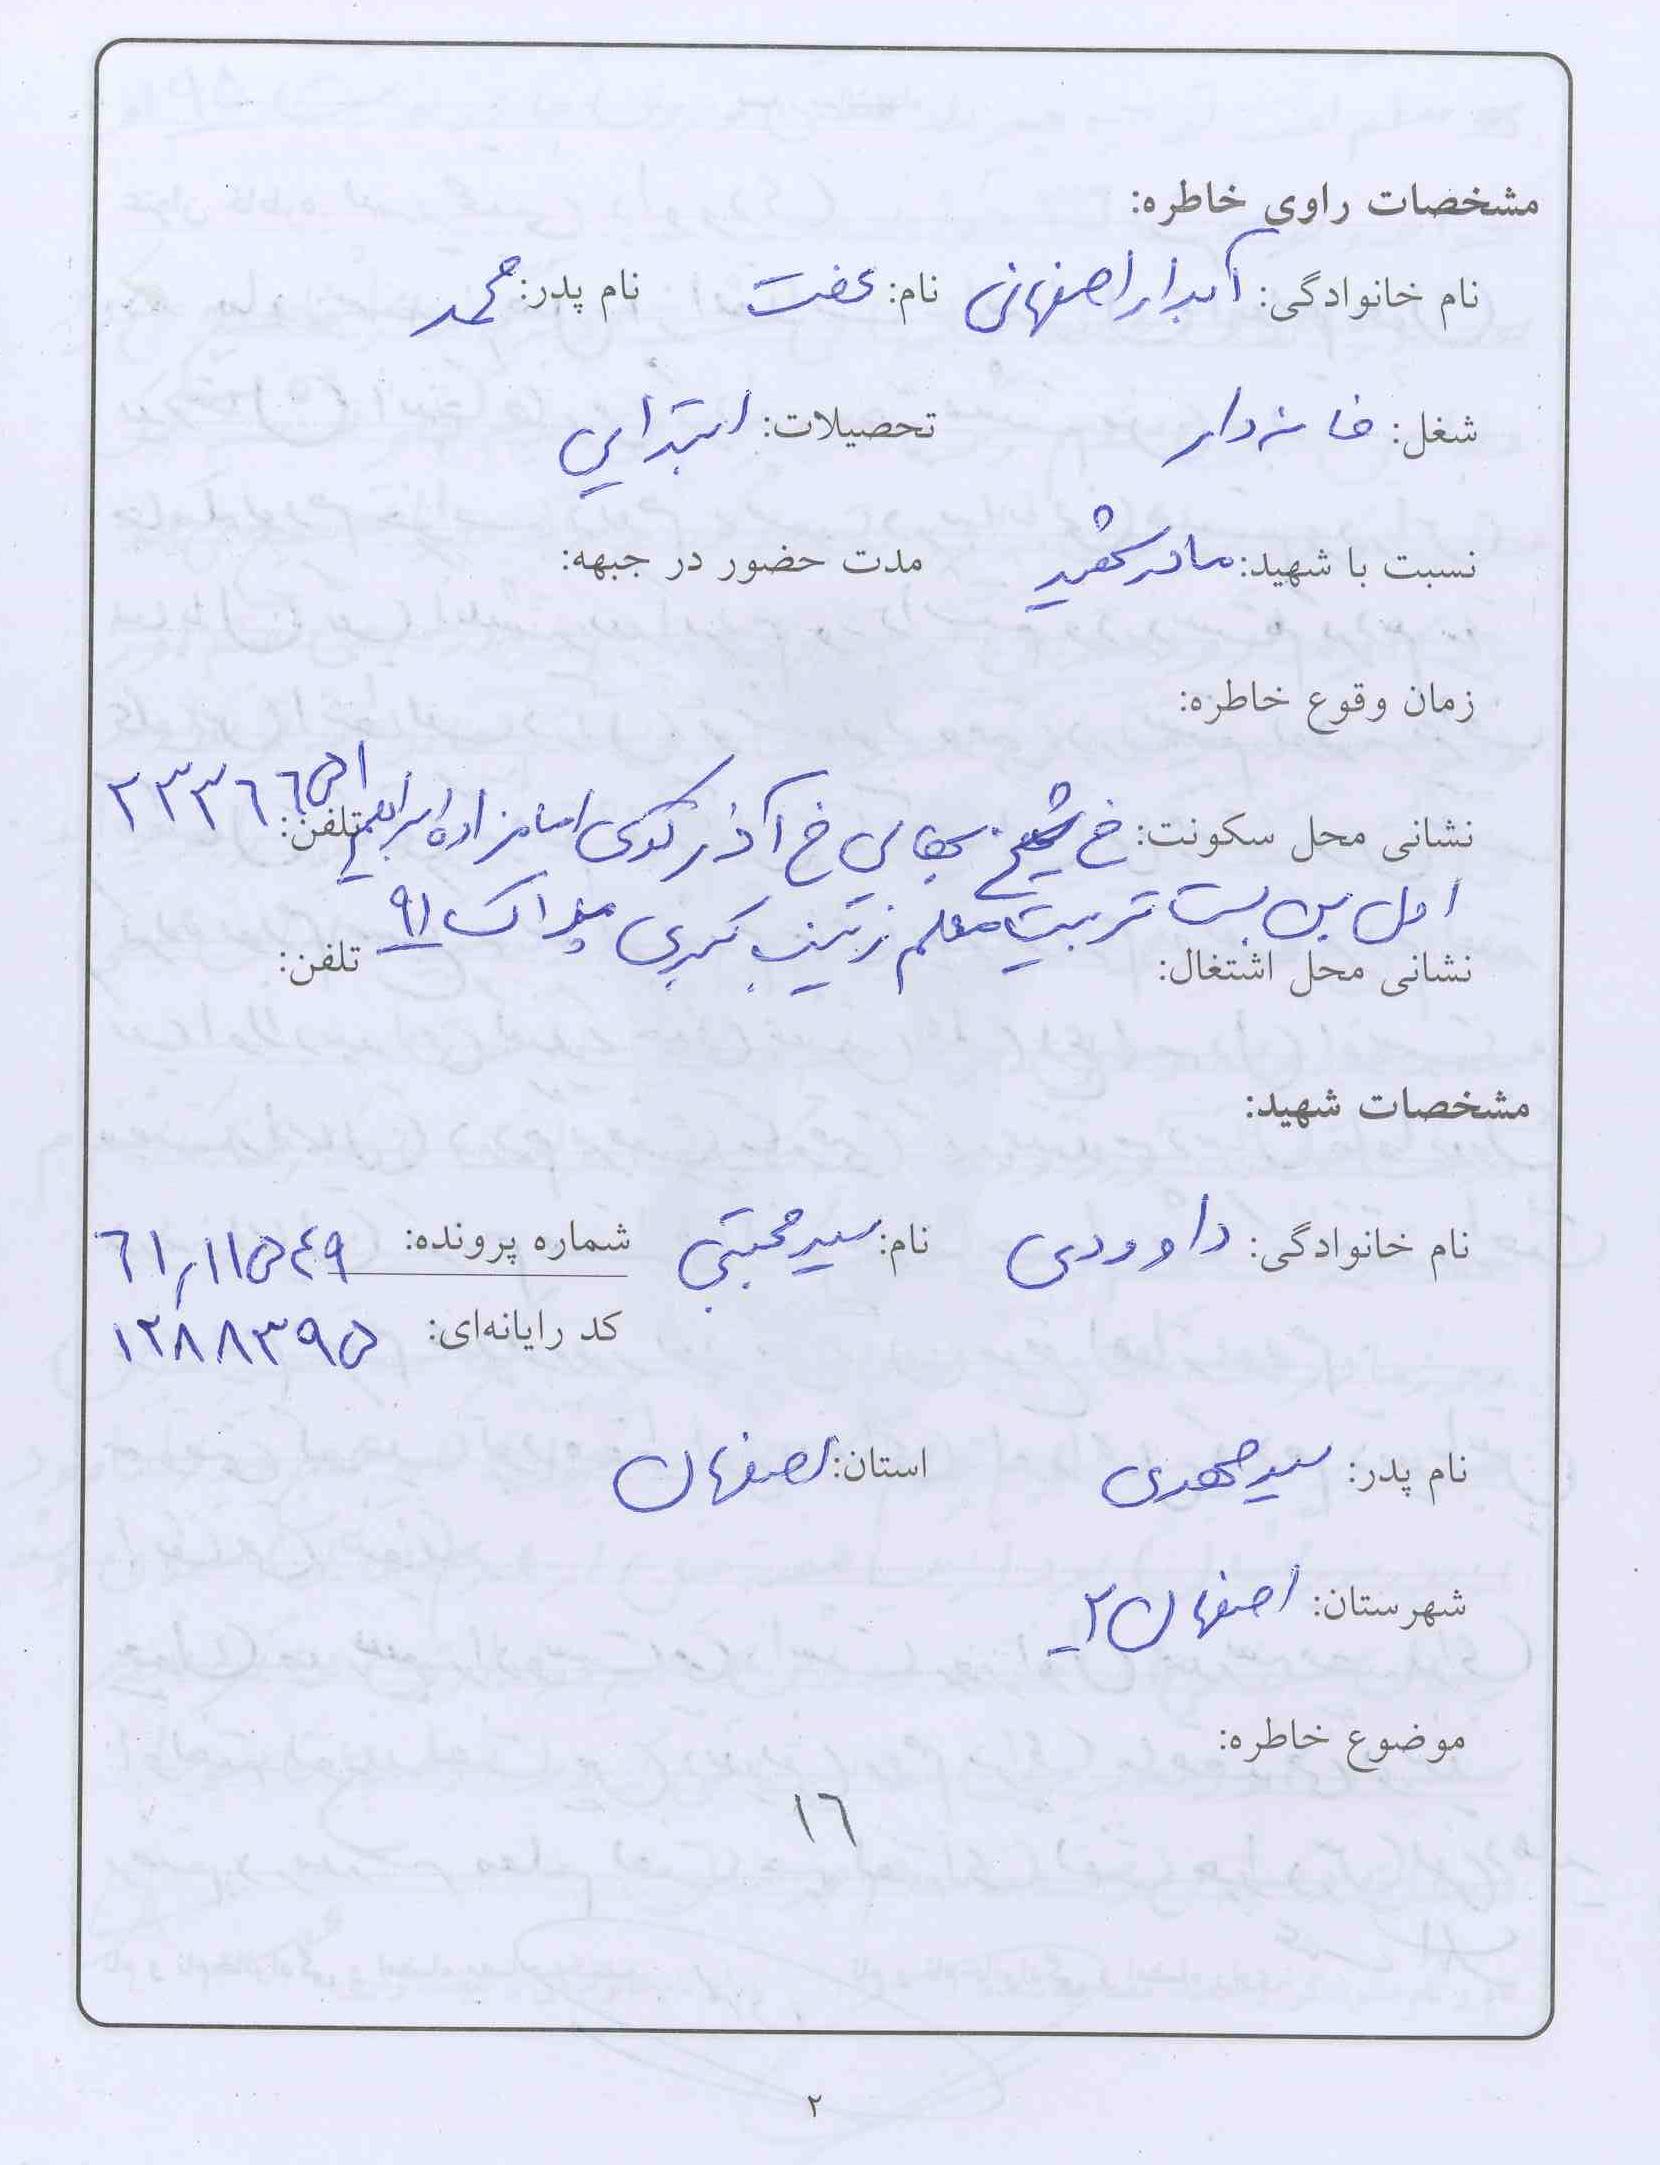 مشخصات راوی خاطره:
نام خانوادگی: آبدار اصفهانی نام: عفت نام پدر: محمد
شغل: خانه دار تحصیلات: ابتدایی
نسبت با شهید: مادر شهید مدت حضور در جبهه:
زمان وقوع خاطره:
نشانی محل سکونت: خ شیخ بهایی خ آذر کوی امامزاده ابراهیم تلفن: ۲۳۳۶۶۵۱
اول بن بست تربیت معلم زینب کبری پلاک ۹۱
نشانی محل اشتغال: تلفن:
مشخصات شهید:
نام خانوادگی: داوودی نام: سید مجتبی شماره پرونده: ۶۱٫۱۱۵۴۹
کد رایانه‌ای: ۱۲۸۸۳۹۵
نام پدر: سید مهدی استان: اصفهان
شهرستان: اصفهان ۲
موضوع خاطره:
۱۶
۲